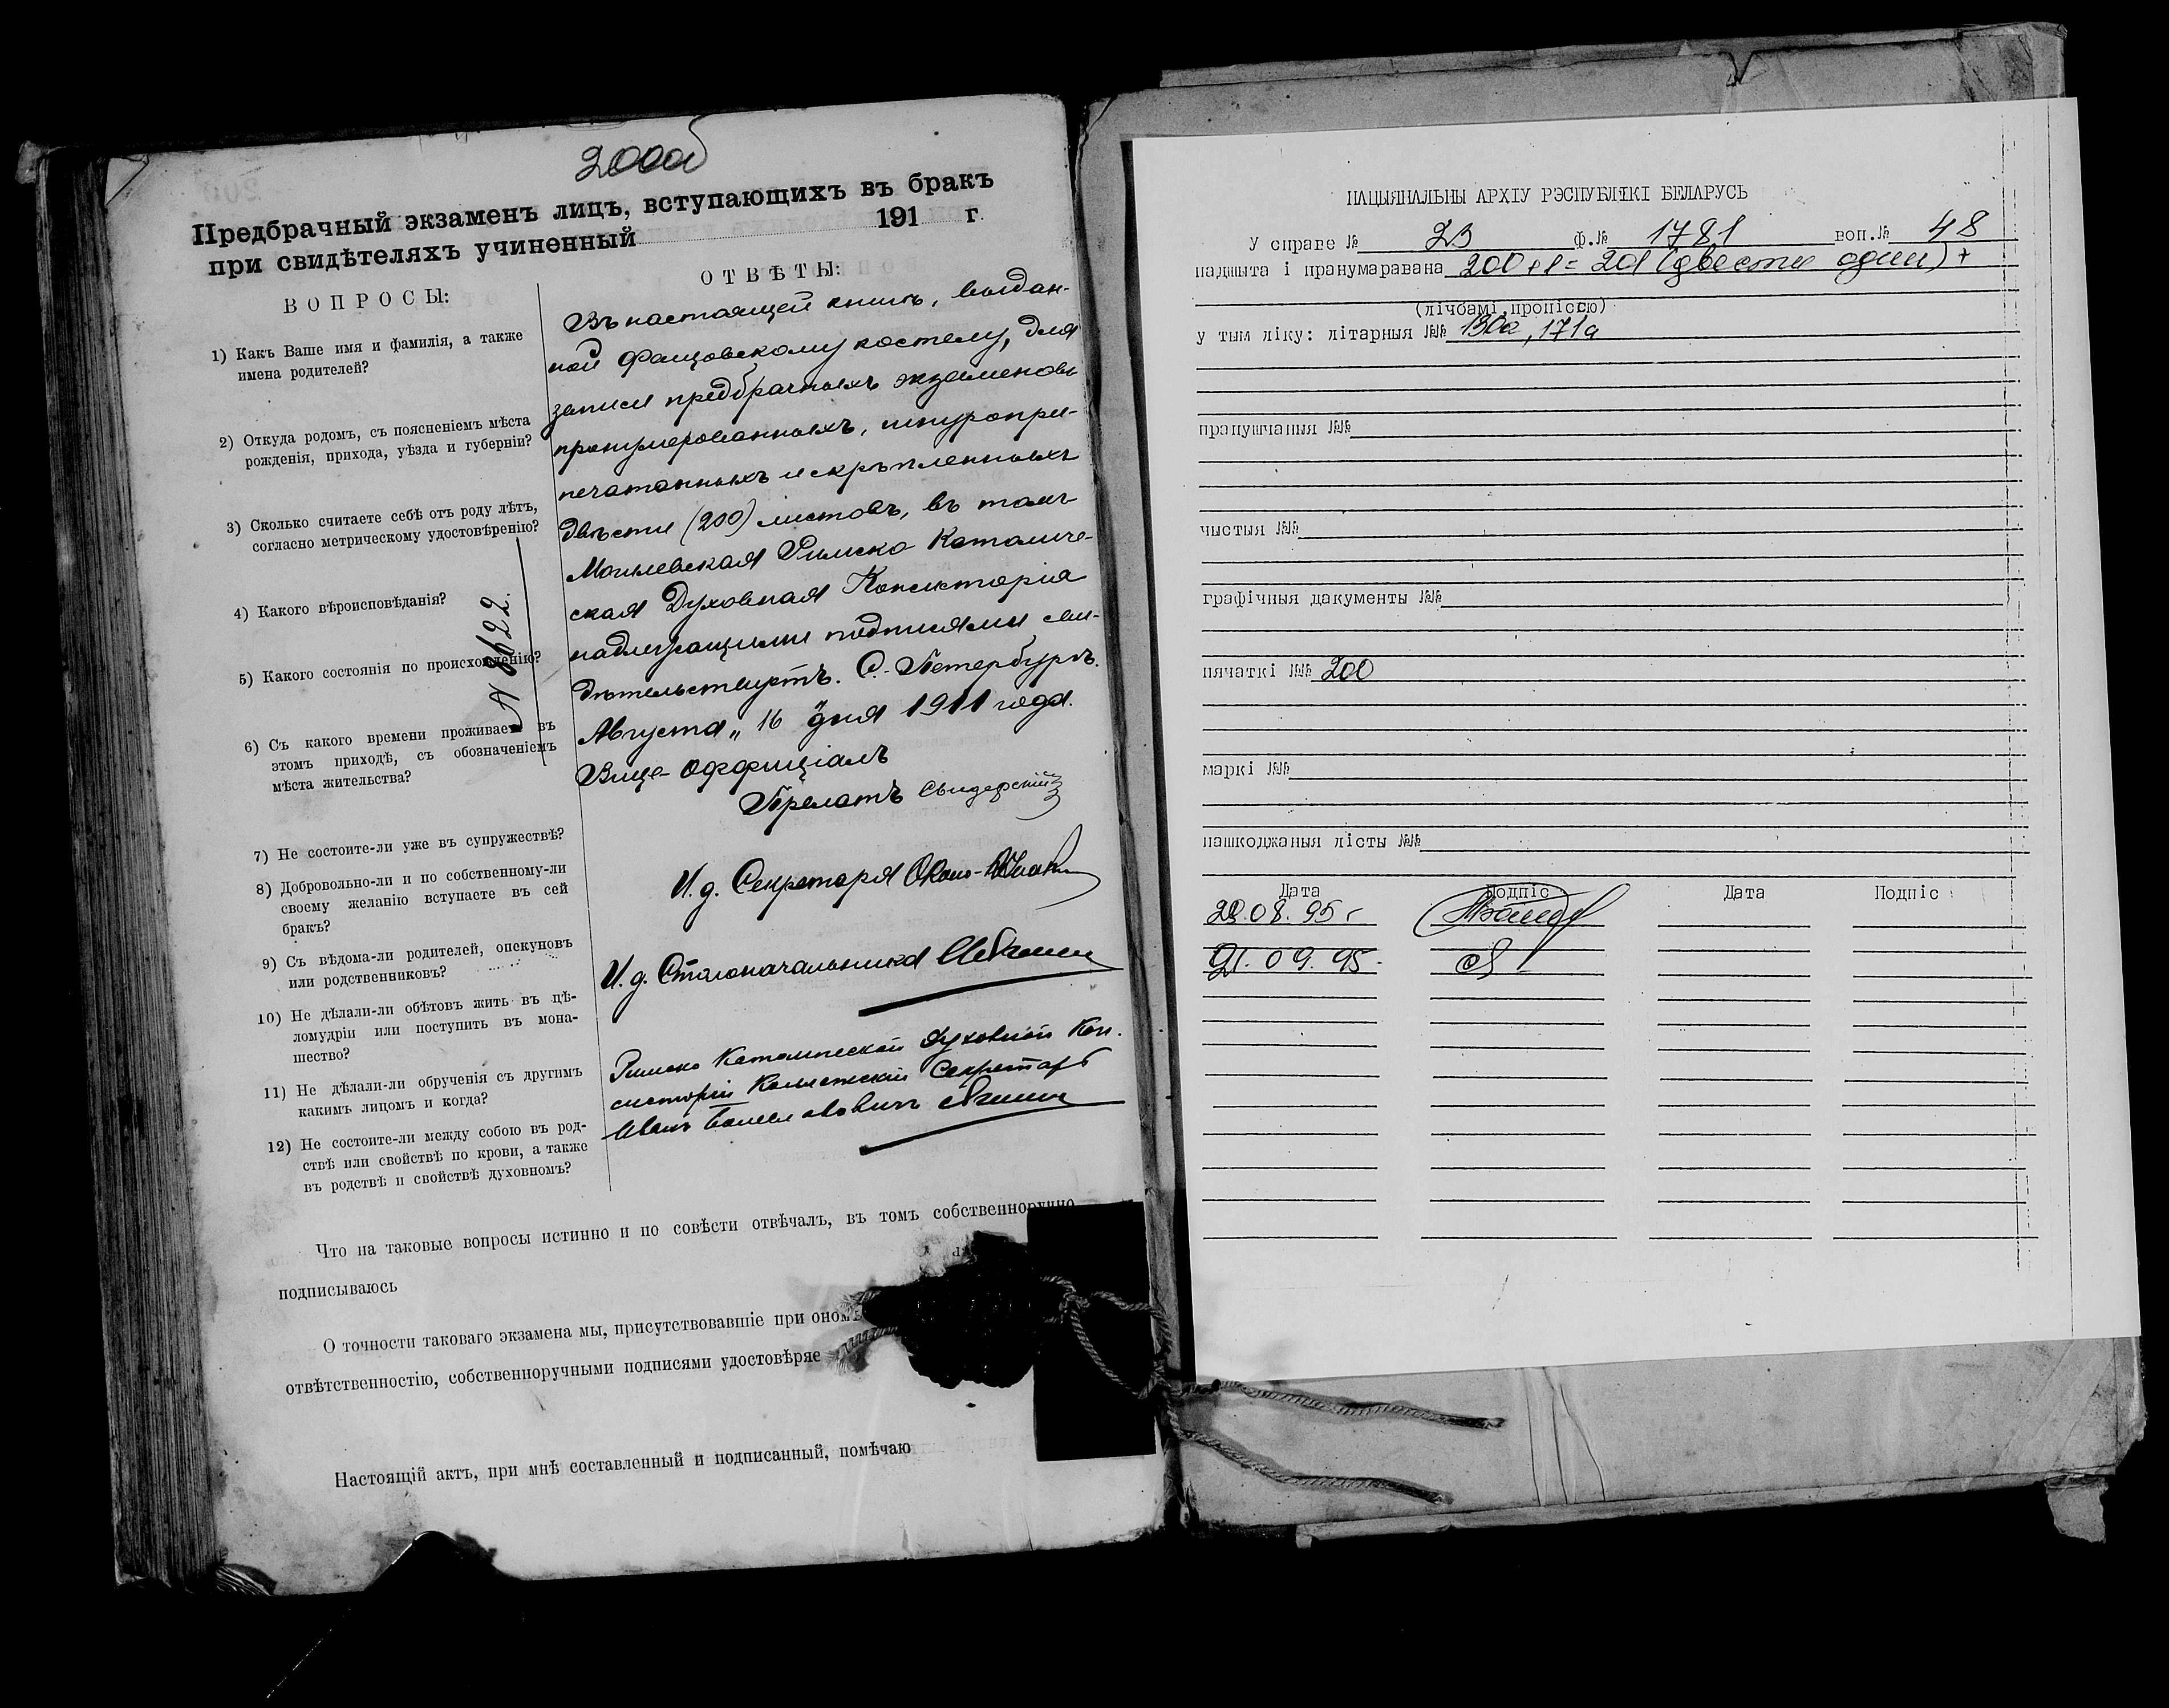 200об
Предбрачный экзаменъ лицъ, вступающихъ въ бракъ
при свидѣтеляхъ учиненный 191 г.
ВОПРОСЫ:
1) Какъ Ваше имя и фамилія, а также
имена родителей?
2) Откуда родомъ, съ поясненіемъ мѣста
рожденія, прихода, уѣзда и губерніи?
3) Сколько считаете себѣ отъ роду лѣтъ,
согласно метрическому удостовѣренію?
4) Какого вѣроисповѣданія?
5) Какого состоянія по происхожденію?
6) Съ какого времени проживаете въ
этомъ приходѣ, съ обозначеніемъ
мѣста жительства?
7) Не состоите-ли уже въ супружествѣ?
8) Добровольно-ли и по собственному-ли
своему желанію вступаете въ сей
бракъ?
9) Съ вѣдома-ли родителей, опекуновъ
или родственниковъ?
10) Не дѣлали-ли обѣтовъ жить въ цѣ-
ломудріи или поступить въ мона-
шество?
11) Не дѣлали-ли обрученія съ другимъ
какимъ лицомъ и когда?
12) Не состоите-ли между собою въ род-
ствѣ или свойствѣ по крови, а также
въ родствѣ и свойствѣ духовномъ?
ОТВѢТЫ:
Въ настоящей книгѣ, выдан-
ной Фащовскому костелу, для
записи предбрачныхъ экзаменовъ
пронумерованныхъ, шнуропри-
печатанныхъ и скрѣпленныхъ
двѣсти (200) листовъ, въ томъ
Могилевская Римско Католиче-
ская Духовная Консисторія
надлежащими подписями сви-
дѣтельствуетъ. С.-Петербургъ.
Августа „16" дня 1911 года.
Вице-Оффиціалъ
Прелатъ Свидерскій
И. д. Секретаря
И. д. Столоначальника
Римско Католической Духовной Кон-
систоріи Коллежскій Секретарь
Иванъ Болеславовичъ
Что на таковые вопросы истинно и по совѣсти отвѣчалъ, въ томъ собственноручно
подписываюсь
О точности таковаго экзамена мы, присутствовавшіе при ономъ
отвѣтственностію, собственноручными подписями удостовѣряе
Настоящій актъ, при мнѣ составленный и подписанный, помѣчаю
НАЦЫЯНАЛЬНЫ АРХІУ РЭСПУБЛІКІ БЕЛАРУСЬ
У справе № 23 ф.№ 1781 воп.№ 48
падшыта і пранумаравана 200+1= 201 (двести один) +
(лічбамі, пропіссю)
у тым ліку: літарныя №№ 130а, 171а
прапушчаныя №№
чыстыя №№
графічныя дакументы №№
пячаткі №№ 200
маркі №№
пашкоджаныя лісты №№
Дата Подпіс Дата Подпіс
29.08.95 г
21.09.95